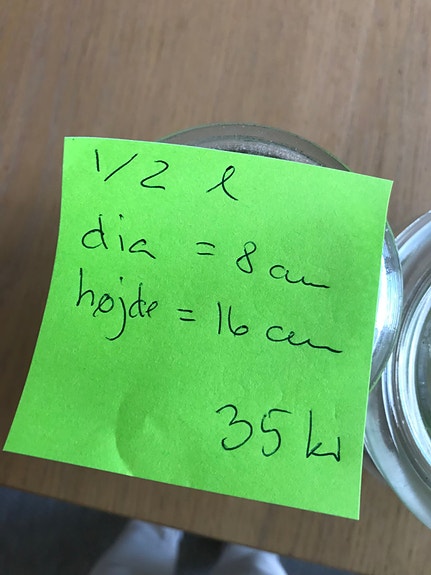 1/2 l
dia = 8 cm
højde = 16 cm
35 kr